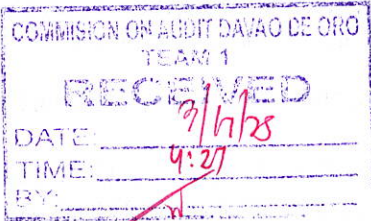 COMMISION ON AUDIT DAVAO DE ORO
TEAM 1
RECEIVED
DATE:
TIME: 4:27
BY: